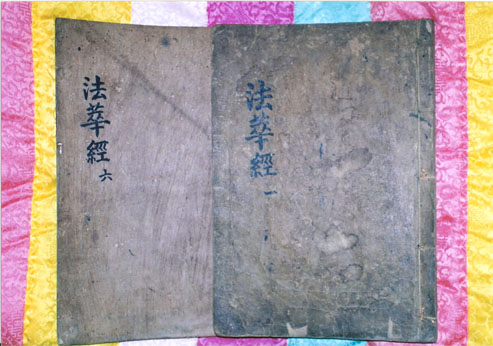 法華經 六
法華經 一